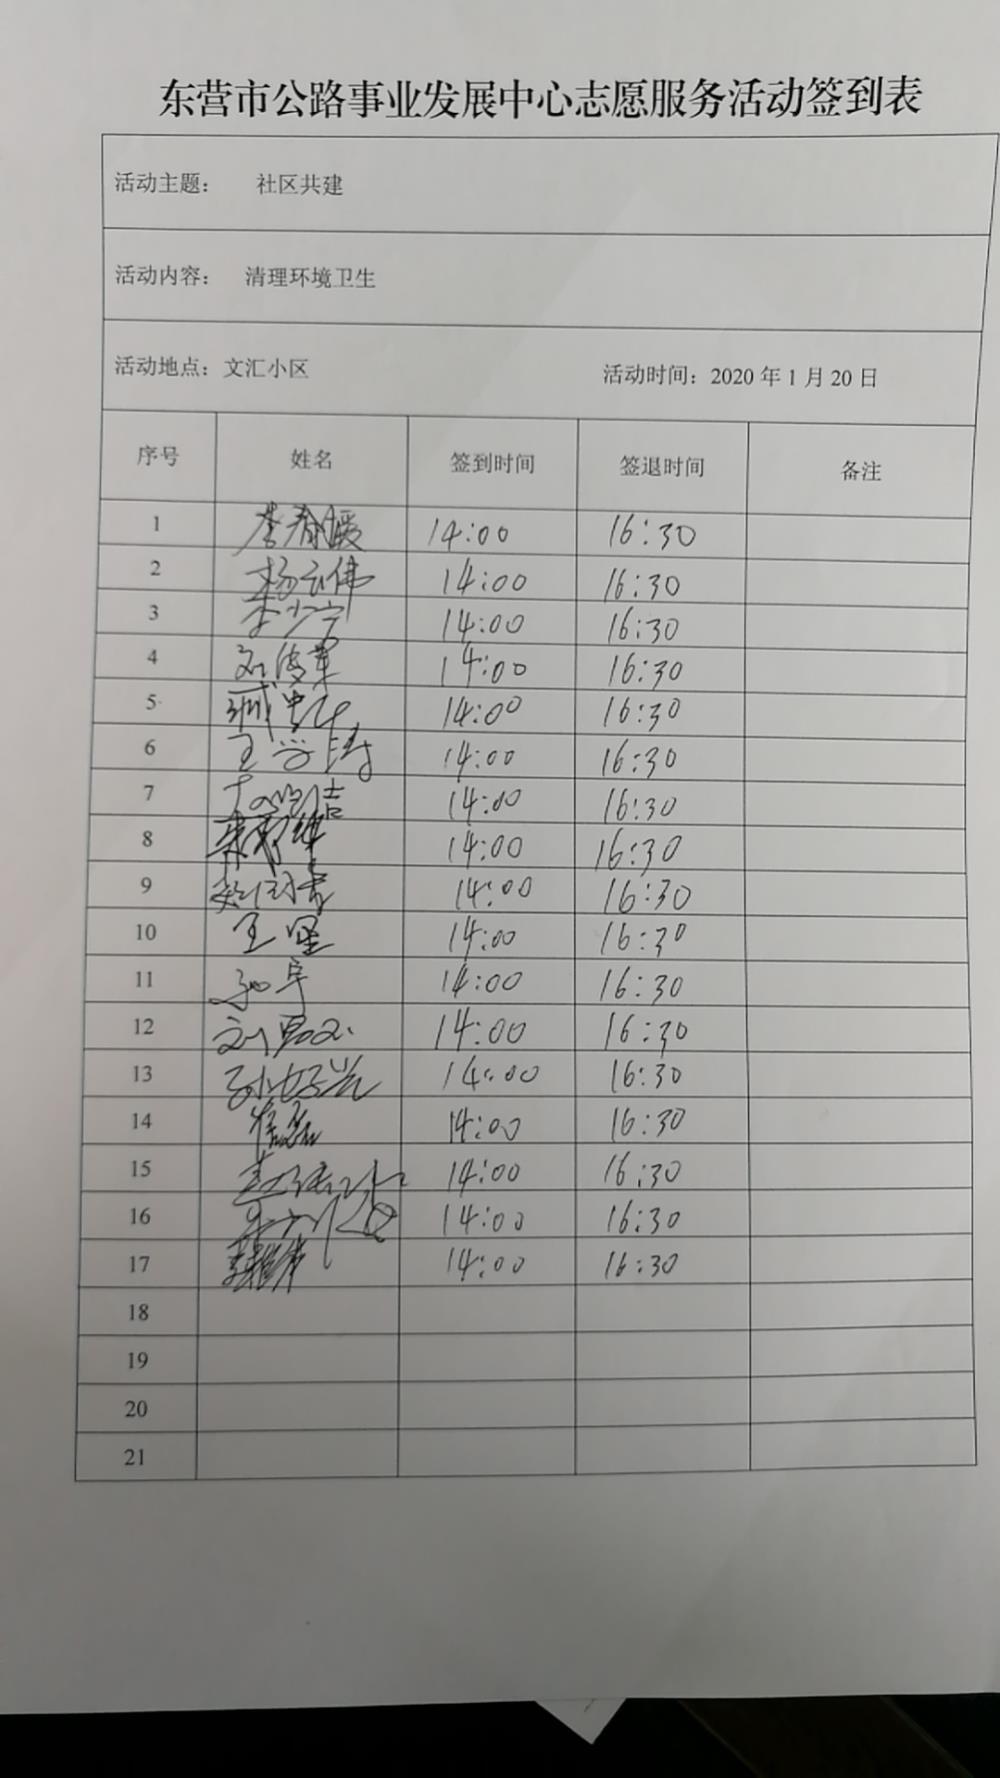 东营市公路事业发展中心志愿服务活动签到表
活动主题： 社区共建
活动内容： 清理环境卫生
活动地点：文汇小区 活动时间：2020年1月20日
序号 姓名 签到时间 签退时间 备注
1 李春媛 14:00 16:30
2 杨云伟 14:00 16:30
3 李少宁 14:00 16:30
4 14:00 16:30
5 14:00 16:30
6 王学涛 14:00 16:30
7 14:00 16:30
8 14:00 16:30
9 14:00 16:30
10 王坚 14:00 16:30
11 14:00 16:30
12 14:00 16:30
13 14:00 16:30
14 14:00 16:30
15 14:00 16:30
16 14:00 16:30
17 14:00 16:30
18
19
20
21